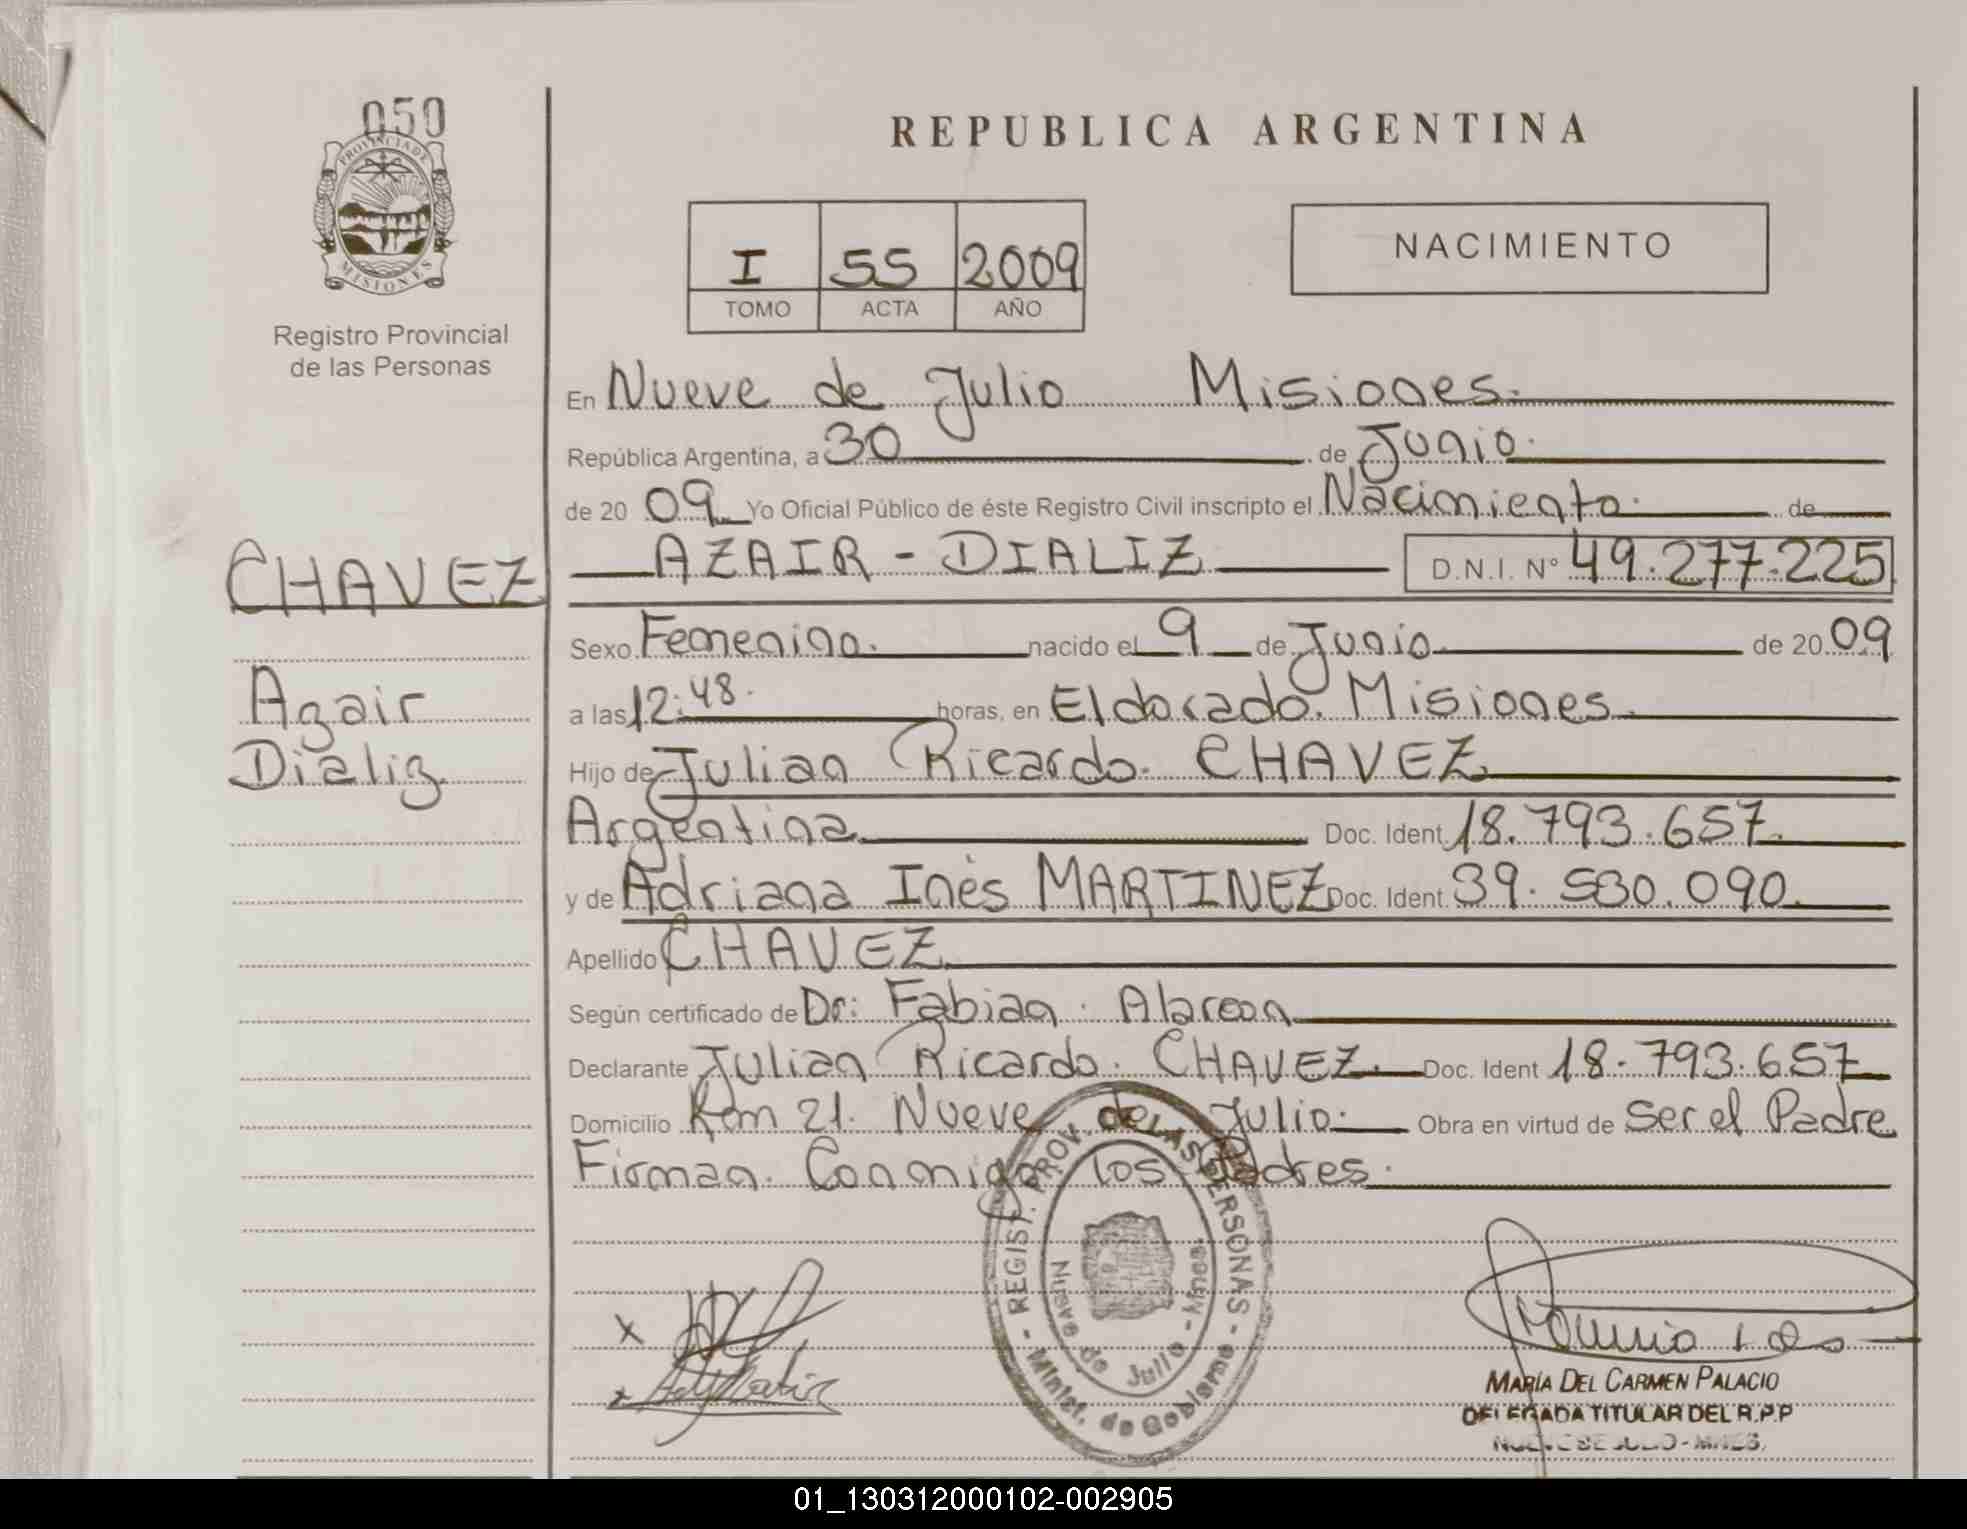 050
PROVINCIA DE
MISIONES
Registro Provincial
de las Personas
REPUBLICA ARGENTINA
I 55 2009
TOMO ACTA AÑO
NACIMIENTO
En Nueve de Julio Misiones.
República Argentina, a 30 de Junio.
de 20 09 Yo Oficial Público de éste Registro Civil inscripto el Nacimiento. de
CHAVEZ
AZAIR - DIALIZ D.N.I. Nº 49.277.225
Sexo Femenino. nacido el 9 de Junio de 20 09
Azair
Dializ
a las 12:48. horas, en Eldorado. Misiones.
Hijo de Julian Ricardo. CHAVEZ
Argentina Doc. Ident 18.793.657.
y de Adriana Inés MARTINEZ Doc. Ident. 39.530.090.
Apellido CHAVEZ
Según certificado de Dr: Fabian. Alarcon
Declarante Julian Ricardo. CHAVEZ. Doc. Ident 18.793.657
Domicilio Km 21. Nueve de Julio. Obra en virtud de Ser el Padre
Firman Conmigo los Padres.
- REGIST. PROV. DE LAS PERSONAS -
Minist. de Gobierno
Nueve de Julio - Mnes.
MARÍA DEL CARMEN PALACIO
DELEGADA TITULAR DEL R.P.P
NUEVE DE JULIO - MNES.
01_130312000102-002905